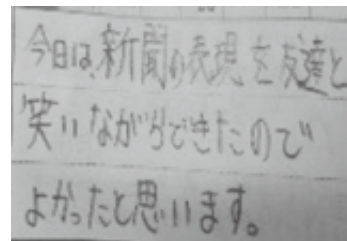 今日は、新聞の表現を友達と
笑いながらできたので
よかったと思います。